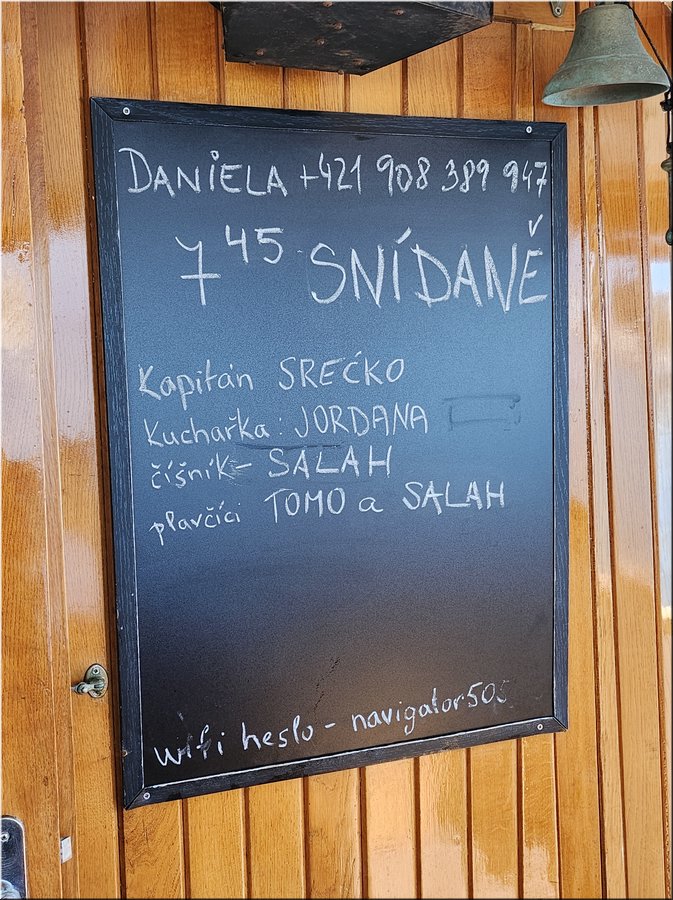 DANIELA +421 908 389 947
7 45 SNÍDANĚ
Kapitán SREĆKO
Kuchařka: JORDANA
číšník - SALAH
plavčíci TOMO a SALAH
wifi heslo - navigator505